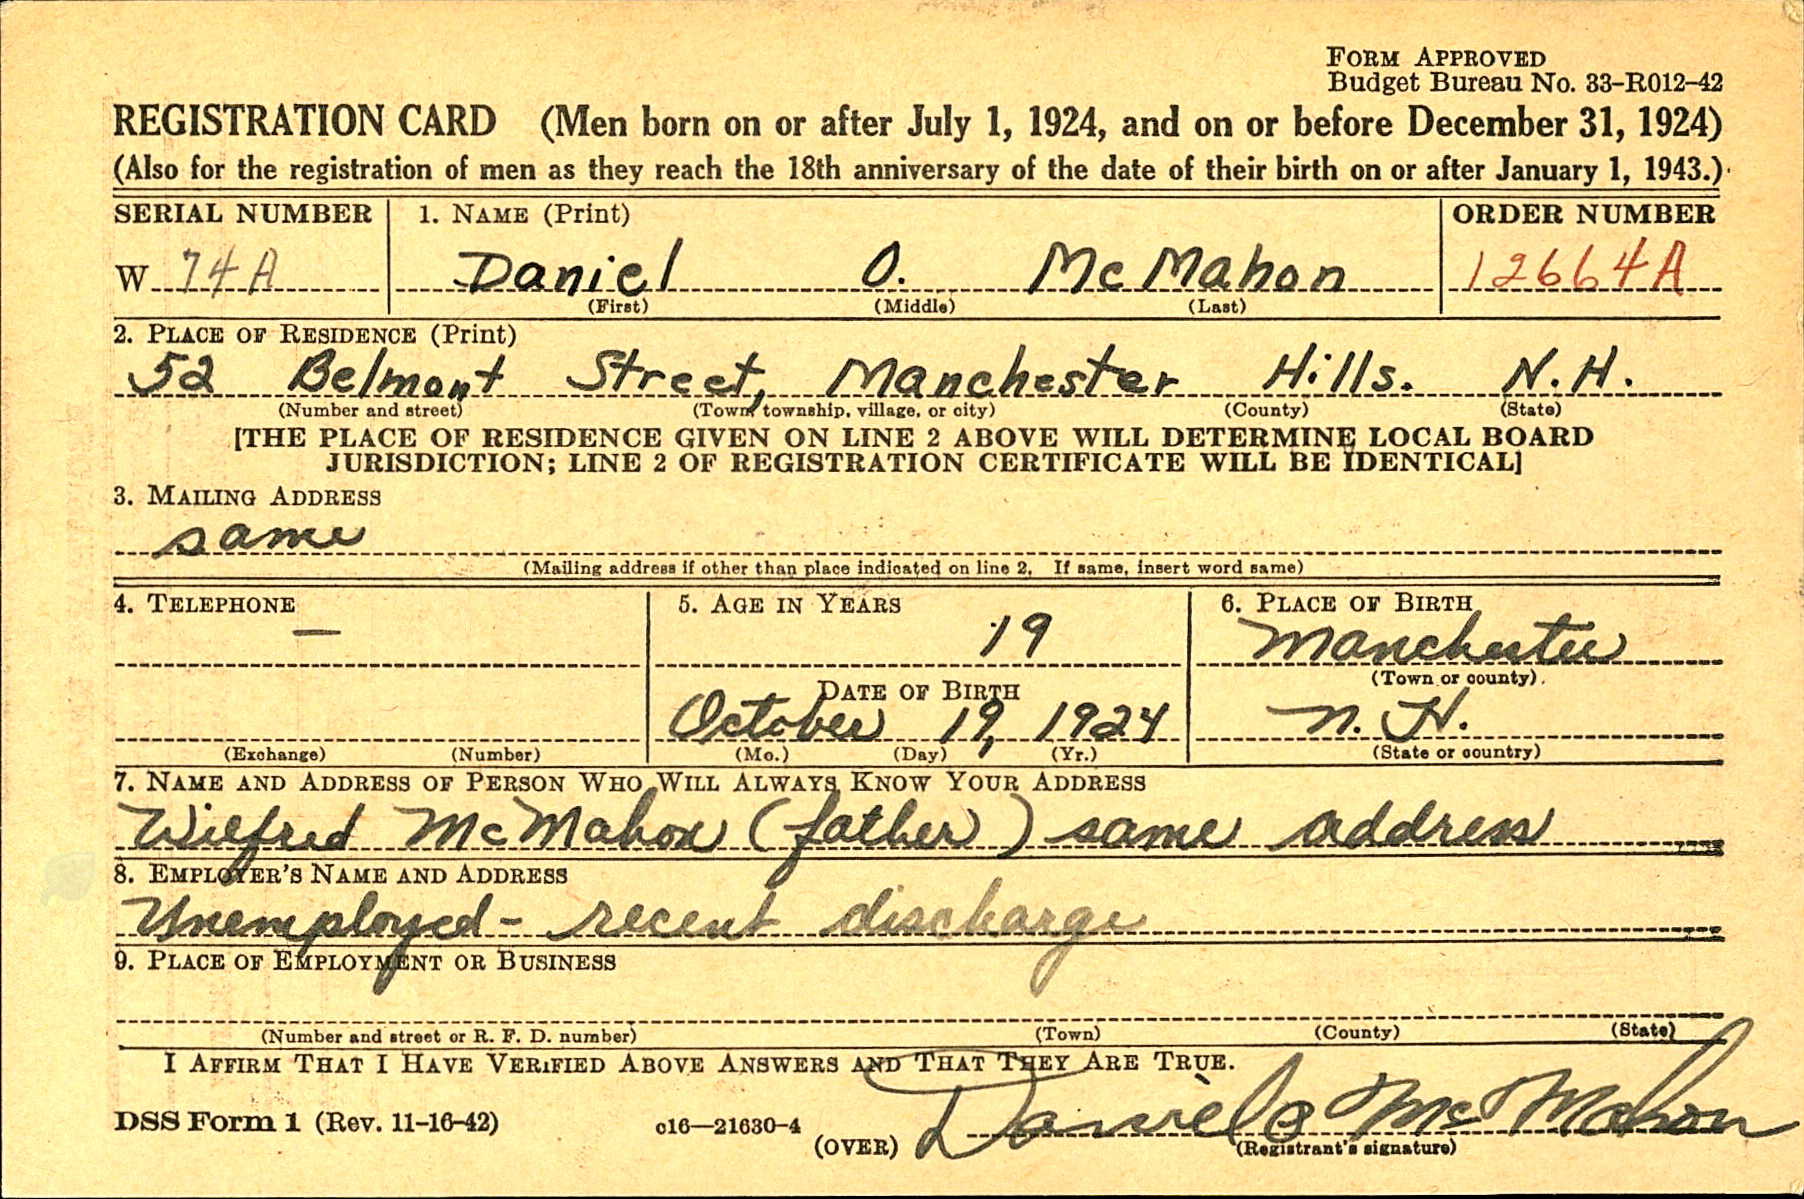 FORM APPROVED
Budget Bureau No. 33-R012-42
REGISTRATION CARD (Men born on or after July 1, 1924, and on or before December 31, 1924)
(Also for the registration of men as they reach the 18th anniversary of the date of their birth on or after January 1, 1943.)
SERIAL NUMBER 1. NAME (Print) ORDER NUMBER
W 74A Daniel O. McMahon 12664A
(First) (Middle) (Last)
2. PLACE OF RESIDENCE (Print)
52 Belmont Street, Manchester Hills. N.H.
(Number and street) (Town, township, village, or city) (County) (State)
[THE PLACE OF RESIDENCE GIVEN ON LINE 2 ABOVE WILL DETERMINE LOCAL BOARD
JURISDICTION; LINE 2 OF REGISTRATION CERTIFICATE WILL BE IDENTICAL]
3. MAILING ADDRESS
same
(Mailing address if other than place indicated on line 2. If same, insert word same)
4. TELEPHONE 5. AGE IN YEARS 6. PLACE OF BIRTH
— 19 Manchester
(Town or county)
DATE OF BIRTH
October 19, 1924 N. H.
(Exchange) (Number) (Mo.) (Day) (Yr.) (State or country)
7. NAME AND ADDRESS OF PERSON WHO WILL ALWAYS KNOW YOUR ADDRESS
Wilfred McMahon (father) same address
8. EMPLOYER'S NAME AND ADDRESS
Unemployed - recent discharge
9. PLACE OF EMPLOYMENT OR BUSINESS
(Number and street or R. F. D. number) (Town) (County) (State)
I AFFIRM THAT I HAVE VERIFIED ABOVE ANSWERS AND THAT THEY ARE TRUE.
DSS Form 1 (Rev. 11-16-42) c16—21630-4 (OVER) Daniel O McMahon
(Registrant's signature)